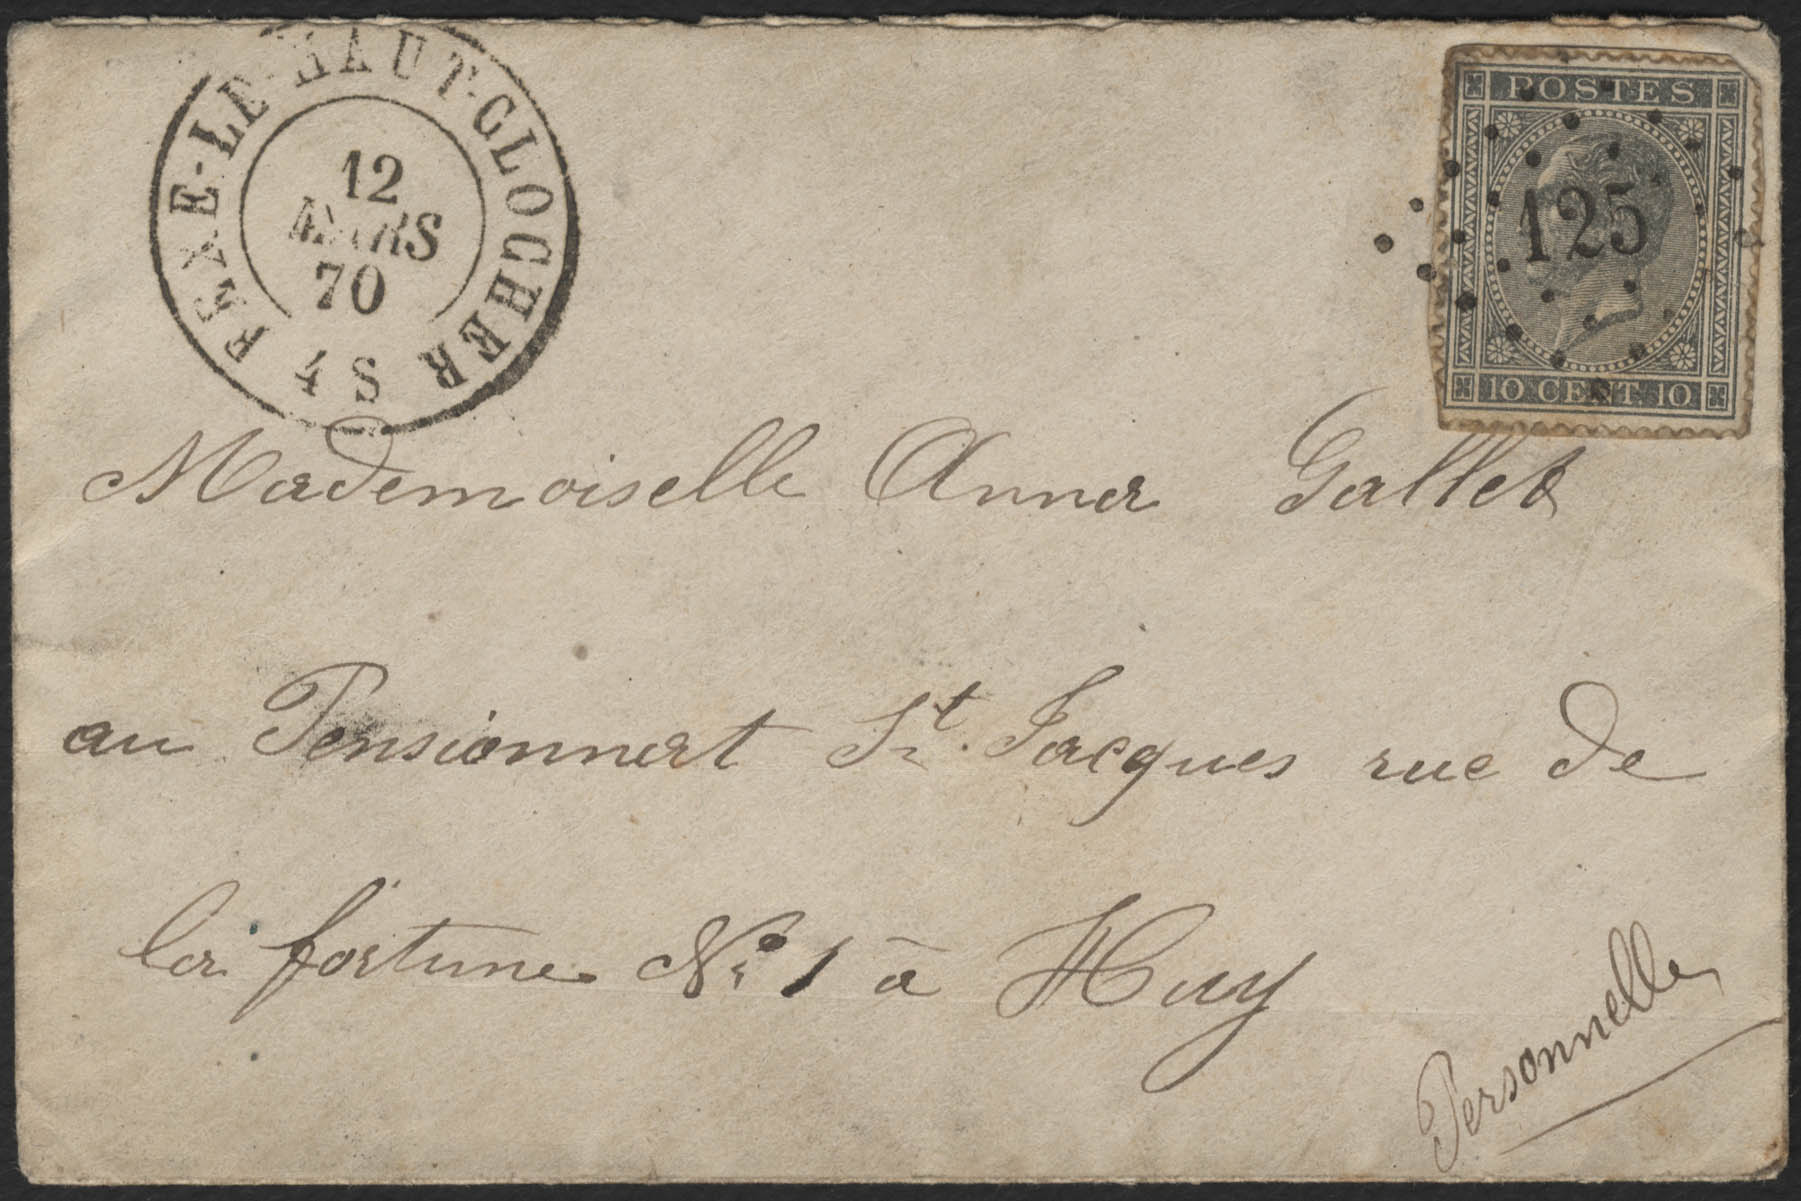 FEXE-LE-HAUT-CLOCHER
12
MARS
70
4 S
POSTES
125
10 CENT. 10
Mademoiselle Anna Gallet
au Pensionnat St. Jacques rue de
la fortune No 1 à Huy
Personnelle